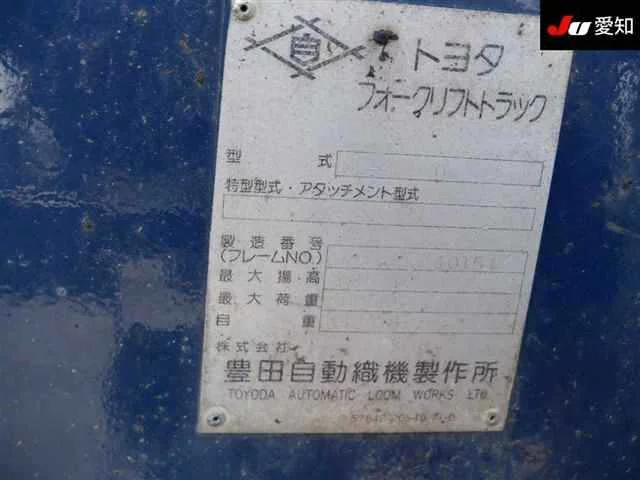 JU愛知
自
トヨタ
フォークリフトトラック
型式
特型型式・アタッチメント型式
製造番号
(フレームNO.)
最大揚高
最大荷重
自重
株式会社
豊田自動織機製作所
TOYODA AUTOMATIC LOOM WORKS LTD.